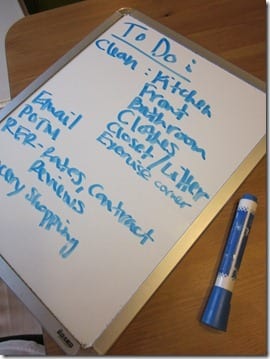 To Do :
Clean : Kitchen
Front
Bathroom
Clothes
Closet/Litter
Exercise corner
Email
POTM
Rates, Contract
Reviews
Shopping